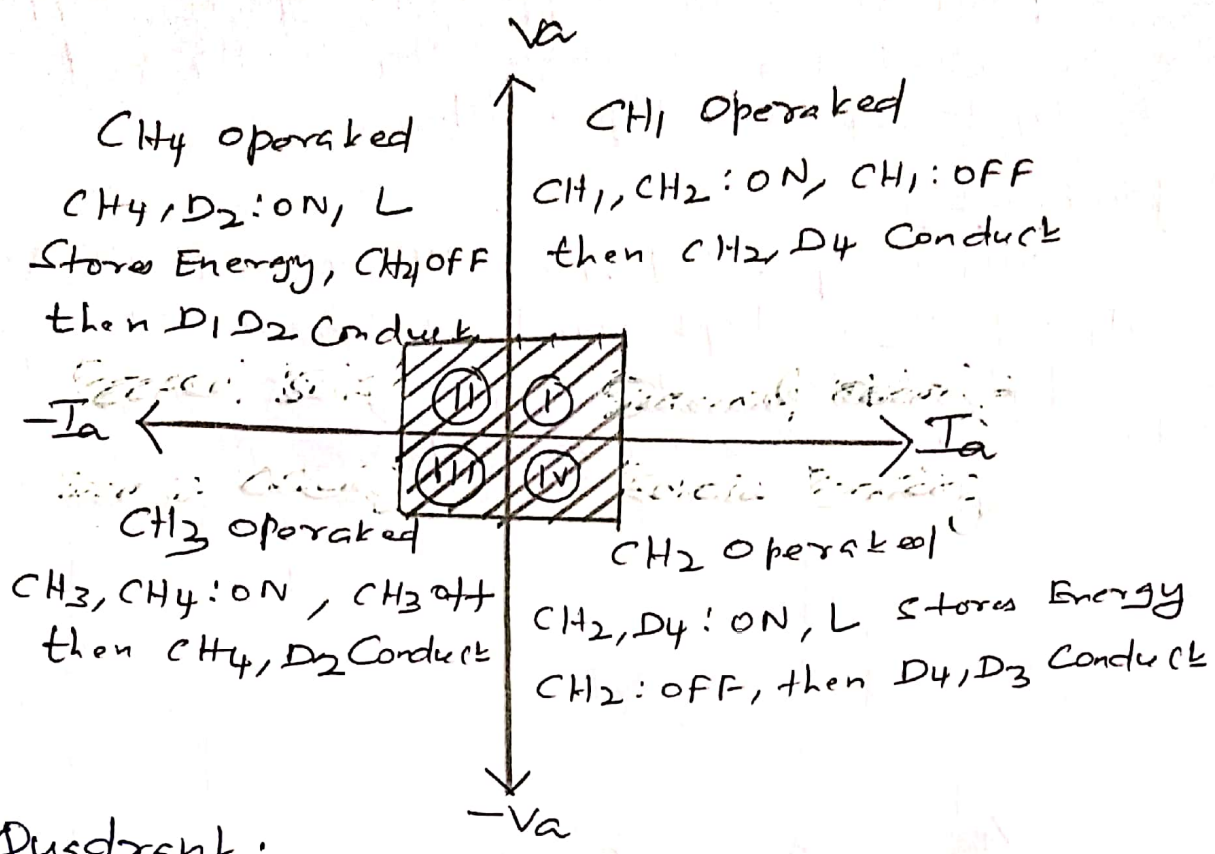 Va
CH4 operated
CH4, D2 : ON, L
Stores Energy, CH4 OFF
then D1 D2 Conduct
CH1 Operated
CH1, CH2 : ON, CH1 : OFF
then CH2, D4 Conduct
II
I
-Ia
Ia
III
IV
CH3 operated
CH3, CH4 : ON, CH3 off
then CH4, D2 Conduct
CH2 Operated
CH2, D4 : ON, L Stores Energy
CH2 : OFF, then D4, D3 Conduct
-Va